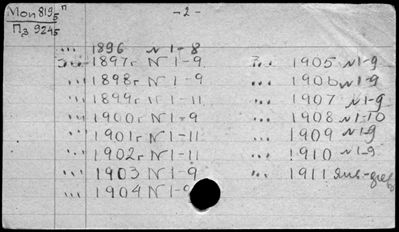 Моп 8195 п
Пз 9245
- 2 -
" 1896 N 1-8
" 1897г N 1-9
" 1898г N 1-9
" 1899г N 1-11
" 1900г N 1-9
" 1901г N 1-11
" 1902г N 1-11
" 1903 N 1-9
" 1904 N 1-9
" 1905 N 1-9
" 1906 N 1-9
" 1907 N 1-9
" 1908 N 1-10
" 1909 N 1-9
" 1910 N 1-9
" 1911 янв-дек